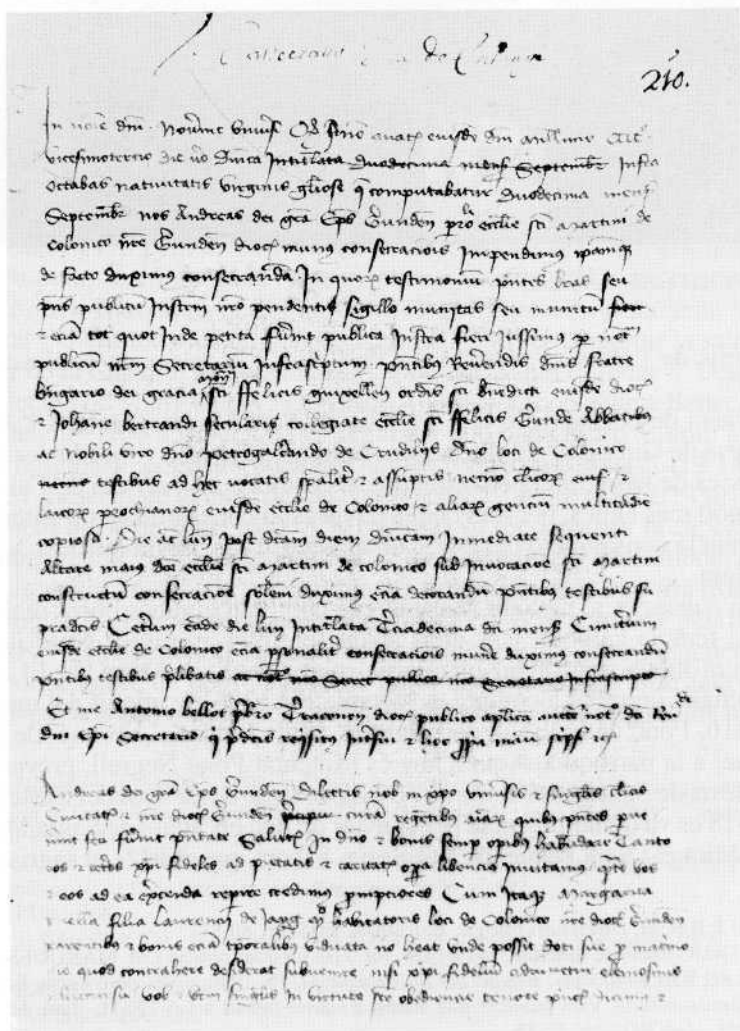 de
210.
In noie dni. Noverint universi Qd anno a natte eiusde dni millimo CCCC
vicesimotercio die vo dnica intitlata duodecima mens Septembr infra
octabas nativitatis virginis gliose q computabatur duodecima mens
Septembr nos Andreas dei gra Eps Gerunden ecclie sci Martini de
Colonico nre Gerunden dioc munus consecracionis impendimus ipamq
de facto duximus consecranda In quor testimonium pntes lras seu
pns publicu instrm nro pendentis sigillo munitas seu munitu
& ecia tot quot inde petita fuerint publica instra fieri jussimus p not
publicu nrm Secretariu infrascriptum pntibus Reverendis dnis fratre
Bngario dei gracia sci ffelicis Guixellen ordis sci Bndicti eiusde dioc
& Johane Bertrandi secularis collegiate ecclie sci ffelicis Gerunde Abbatibus
ac nobili viro dno Petrogalcerando de Crudiliis dno loci de Colonico
testibus ad hec vocatis spaliter & assuptis necno clicor eius &
laicor prochianor eiusde ecclie de Colonico & aliar genciu multitudine
copiosa. Die ac lun post dcam diem dnicam inmediate sequenti
Altare maius dce ecclie sci Martini de Colonico sub invocacioe sci Martini
constructu consecracione solemni duximus ecia decorandu pntibus testibus su
pradcis Ceterum eade die lun intitlata Terciadecima dci mens Cimiterium
eiusde ecclie de Colonico ecia psonaliter consecracionis munere duximus consecrandu
pntibus testibus plibatis ac not nro Secret publico nro secretario infrascripto
Et me Antonio Bellot pbro Terraconen dioc publico aplica aucte not dci Rndi
dni Epi Secretario q pdcis requisitus interfui & hoc ppria manu scripsi

Andreas dei gra Eps Gerunden Dilectis nob in xpo universis & singlis clicis
Civitatis & nre dioc Gerunden curam regentibus quibus pntes perve
nerint seu fuerint pntate Salute in dno & bonis semp opibus habundare Tanto
vos & ceteros xpi fideles ad pietatis & caritatis opera libencius invitamus qnto vos
& eos ad ea exercenda repire credimus pmpciores Cum itaq Margarita
filia Laurencii de habitatoris loci de Colonico nre dioc Gerunden
parentibus & bonis ecia tporalibus viduata no heat unde possit doti sue p matrimo
nio quod contrahere desiderat subvenire nisi xpi fideliu adiuvetur elemosinis
vob & vrm singlis in virtute sce obediencie tenore pnci dicimus &